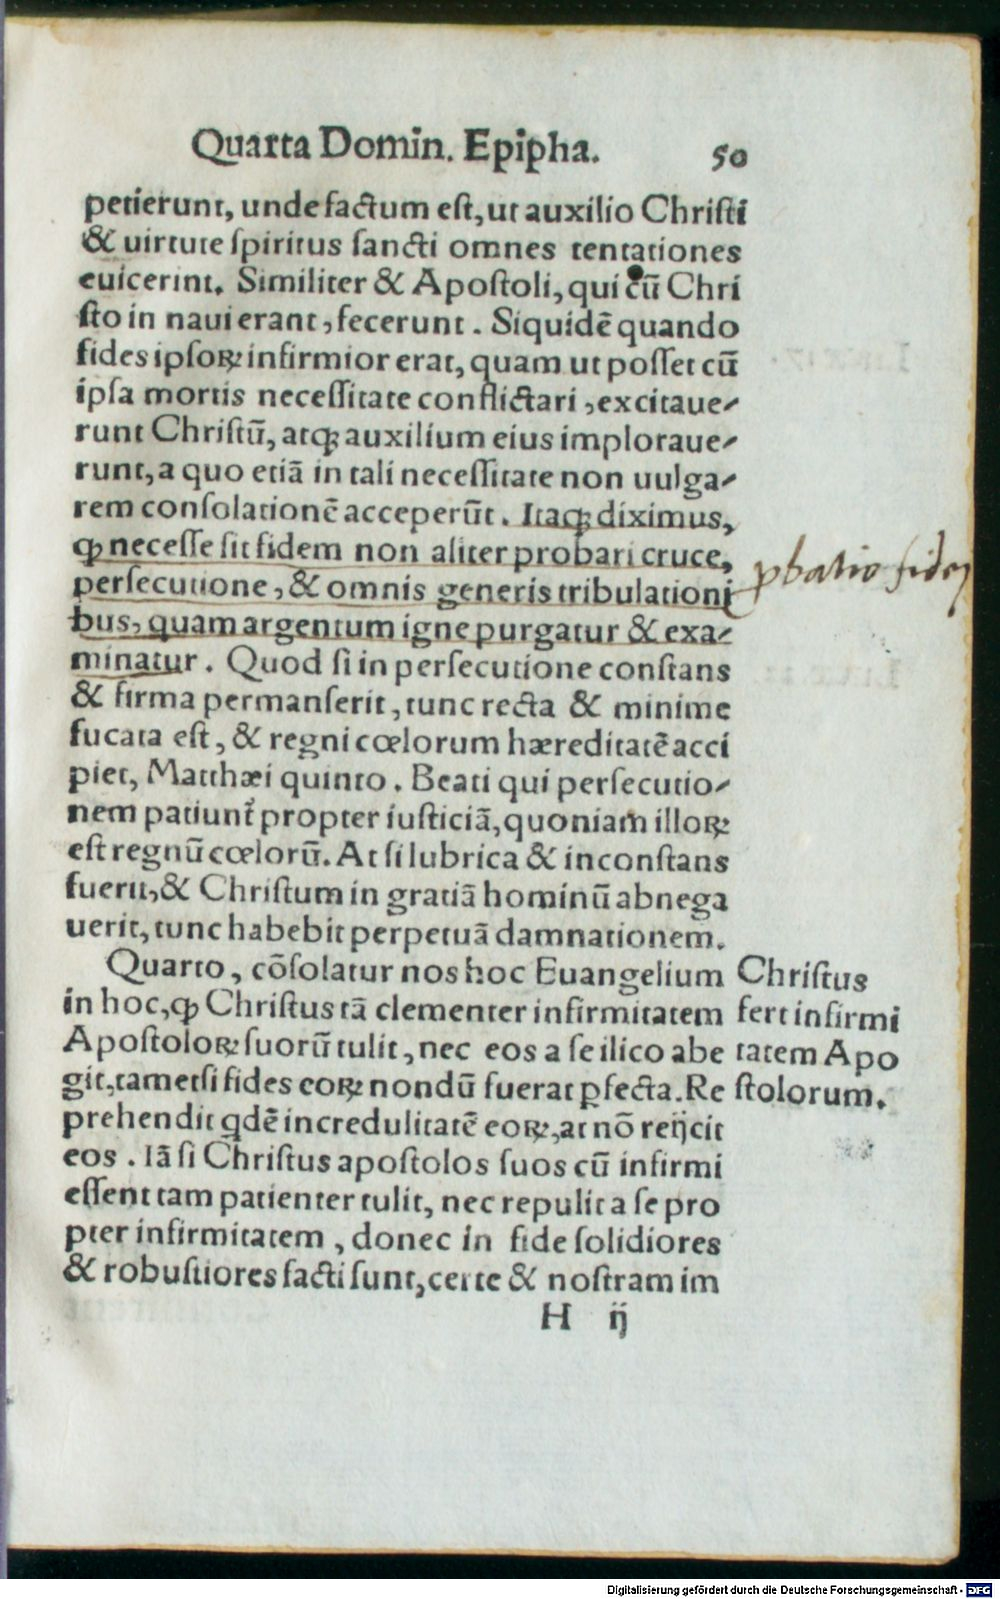 Quarta Domin. Epipha. 50
petierunt, unde factum est, ut auxilio Christi
& uirtute spiritus sancti omnes tentationes
euicerint. Similiter & Apostoli, qui cũ Chri
sto in naui erant, fecerunt. Siquidẽ quando
fides ipsoꝝ infirmior erat, quam ut posset cũ
ipsa mortis necessitate conflictari, excitaue-
runt Christũ, atqꝫ auxilium eius imploraue-
runt, a quo etiã in tali necessitate non uulga-
rem consolationẽ acceperũt. Itaqꝫ diximus,
ꝙ necesse sit fidem non aliter probari cruce,
persecutione, & omnis generis tribulationi
bus, quam argentum igne purgatur & exa-
minatur. Quod si in persecutione constans
& firma permanserit, tunc recta & minime
fucata est, & regni cœlorum hæreditatẽ acci
piet, Matthæi quinto. Beati qui persecutio-
nem patiunt᷑ propter iusticiã, quoniam illoꝝ
est regnũ cœlorũ. At si lubrica & inconstans
fuerit, & Christum in gratiã hominũ abnega
uerit, tunc habebit perpetuã damnationem.
Quarto, cõsolatur nos hoc Euangelium
in hoc, ꝙ Christus tã clementer infirmitatem
Apostoloꝝ suorũ tulit, nec eos a se ilico abe
git, tametsi fides eoꝝ nondũ fuerat ꝑfecta. Re
prehendit qdẽ incredulitatẽ eoꝝ, at nõ reijcit
eos. Iã si Christus apostolos suos cũ infirmi
essent tam patienter tulit, nec repulit a se pro
pter infirmitatem, donec in fide solidiores
& robustiores facti sunt, certe & nostram im
H ij
ꝓbatio fidei
Christus
fert infirmi
tatem Apo
stolorum.
Digitalisierung gefördert durch die Deutsche Forschungsgemeinschaft - DFG